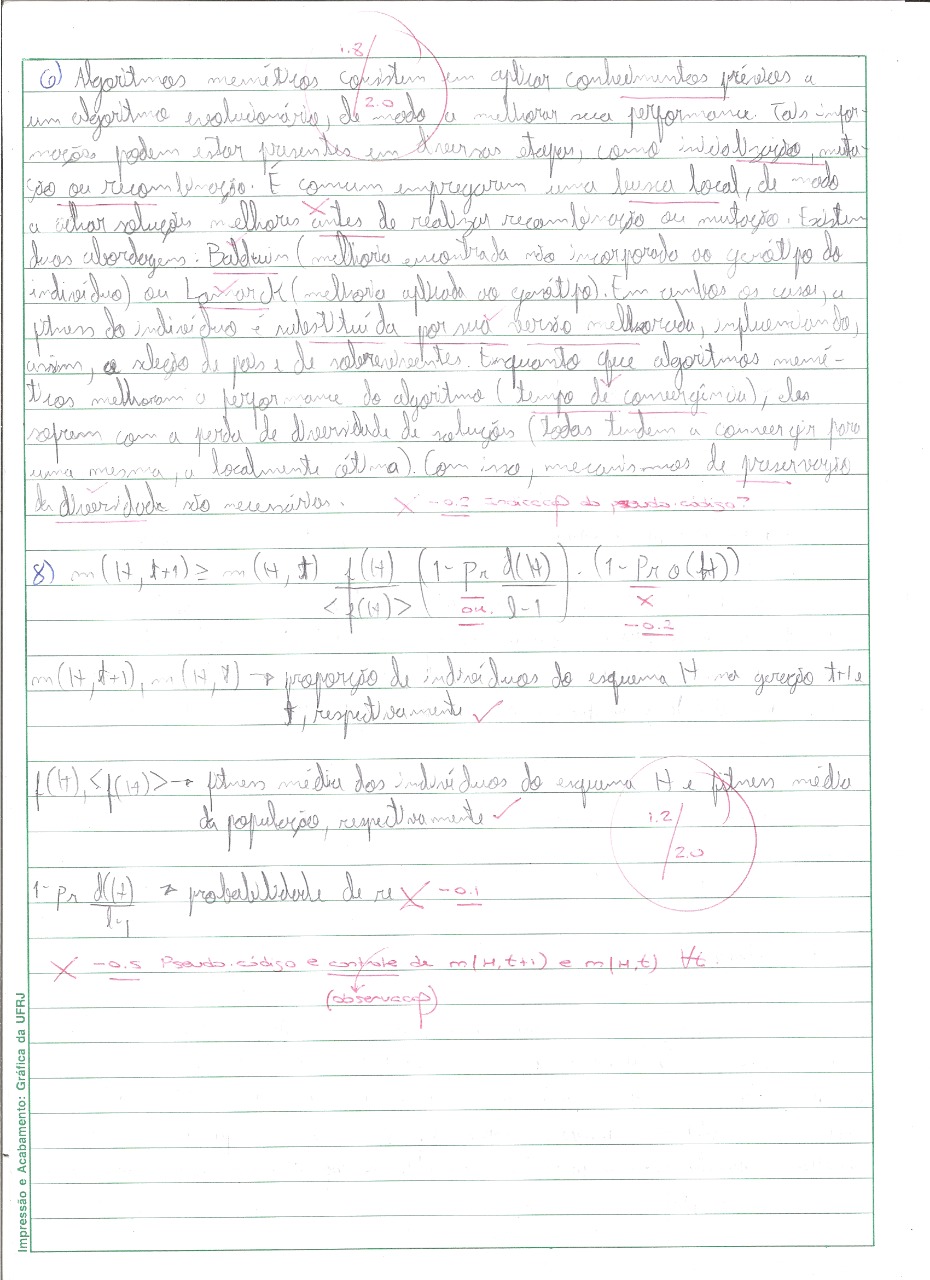 1.8/2.0
6) Algoritmos meméticos consistem em aplicar conhecimentos prévios a
um algoritmo evolucionário, de modo a melhorar sua performance. Tais infor-
mações podem estar presentes em diversas etapas, como inicialização, muta-
ção ou recombinação. É comum empregarem uma busca local, de modo
a achar soluções melhores antes de realizar recombinação ou mutação. Existem
duas abordagens: Baldwin (melhoria encontrada não incorporada ao genótipo do
indivíduo) ou Lamarck (melhoria aplicada ao genótipo). Em ambos os casos, a
fitness do indivíduo é substituída por sua versão melhorada, influenciando,
assim, a seleção de pais e de sobreviventes. Enquanto que algoritmos memé-
ticos melhoram a performance do algoritmo (tempo de convergência), eles
sofrem com a perda de diversidade de soluções (todas tendem a convergir para
uma mesma, a localmente ótima). Com isso, mecanismos de preservação
de diversidade são necessários. X -0.2 do pseudo-código?
8) m(H,t+1) ≥ m(H,t) f(H)/<f(H)> (1-Pr d(H)/l-1) · (1-Pr o(H))
ou X
-0.2
m(H,t+1), m(H,t) → proporção de indivíduos do esquema H na geração t+1 e
t, respectivamente ✓
f(H), <f(H)> → fitness média dos indivíduos do esquema H e fitness média
da população, respectivamente ✓
1.2/2.0
1-Pr d(H)/l-1 → probabilidade de re X -0.1
X -0.5 Pseudo-código e controle de m(H,t+1) e m(H,t) ∀t.
(observação)
Impressão e Acabamento: Gráfica da UFRJ